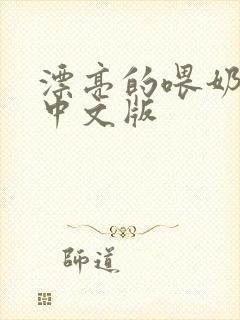 漂亮的喂奶
中文版
師道